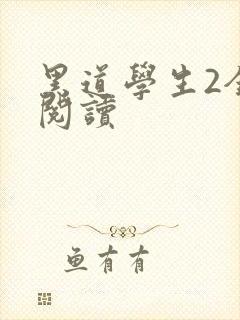 黑道學生2全
閱讀
魚有有